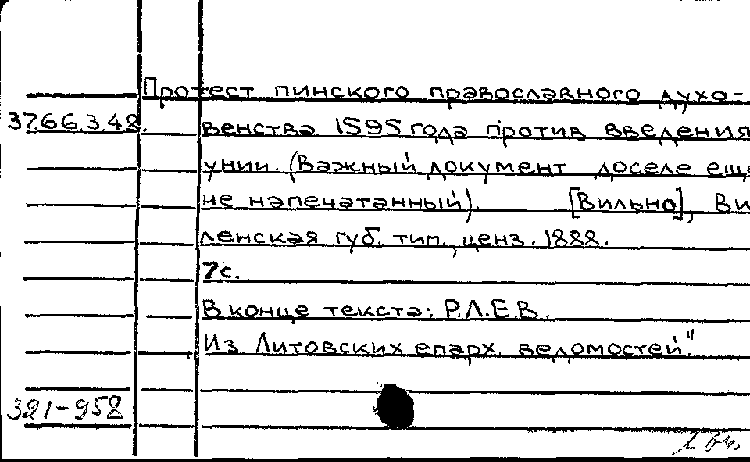 Протест пинского православного духо-
37.66.3.48. венства 1595 года против введения
унии. (Важный документ доселе еще
не напечатанный). [Вильно], Ви
ленская губ. тип., ценз. 1888.
7с.
В конце текста: Р.Л.Е.В.
Из Литовских епарх. ведомостей."
391-958